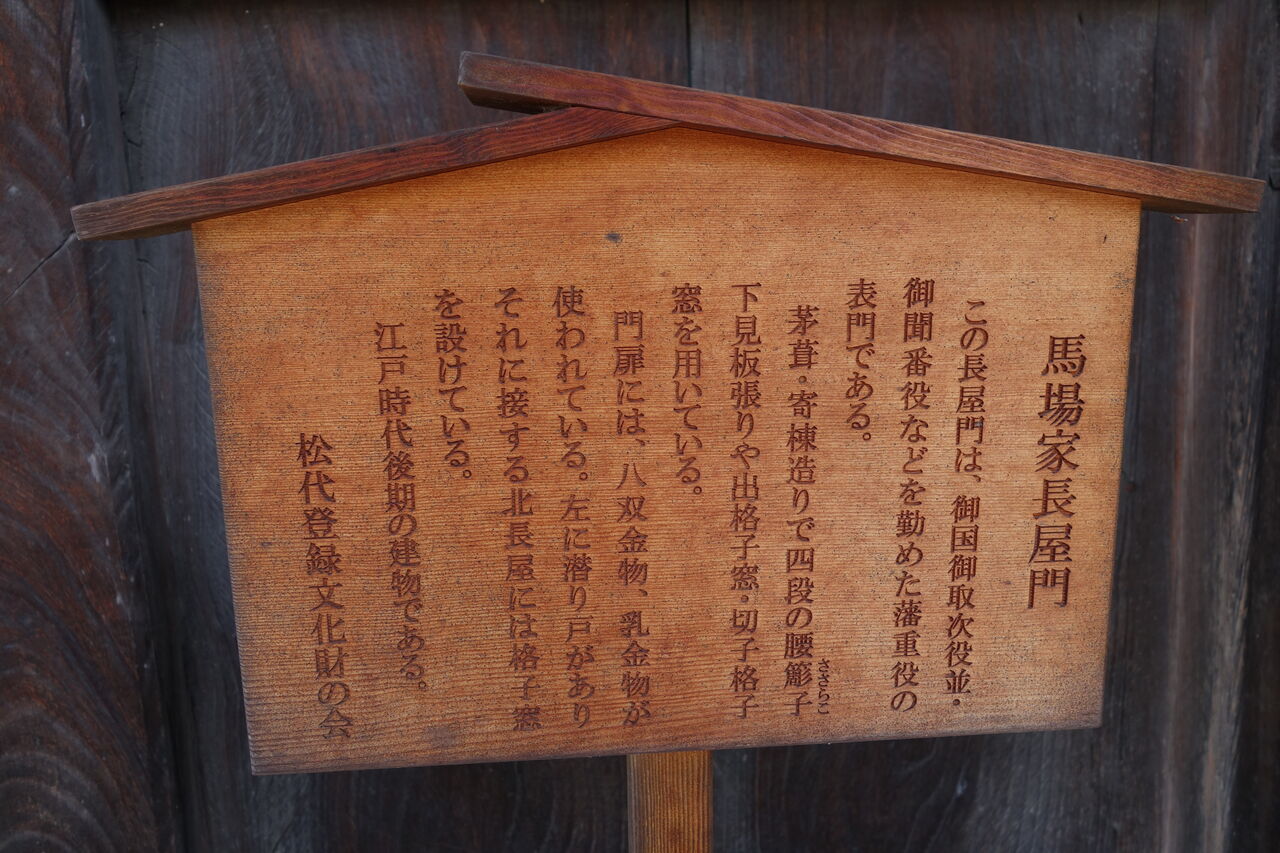 馬場家長屋門
この長屋門は、御国御取次役並・
御聞番役などを勤めた藩重役の
表門である。
茅葺・寄棟造りで四段の腰簓子
ささらこ
下見板張りや出格子窓・切子格子
窓を用いている。
門扉には、八双金物、乳金物が
使われている。左に潜り戸があり
それに接する北長屋には格子窓
を設けている。
江戸時代後期の建物である。
松代登録文化財の会